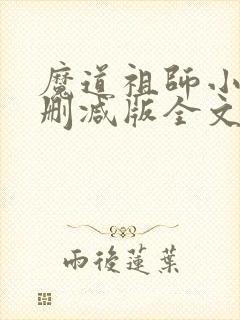 魔道祖師小
刪減版全文
雨後蓮葉